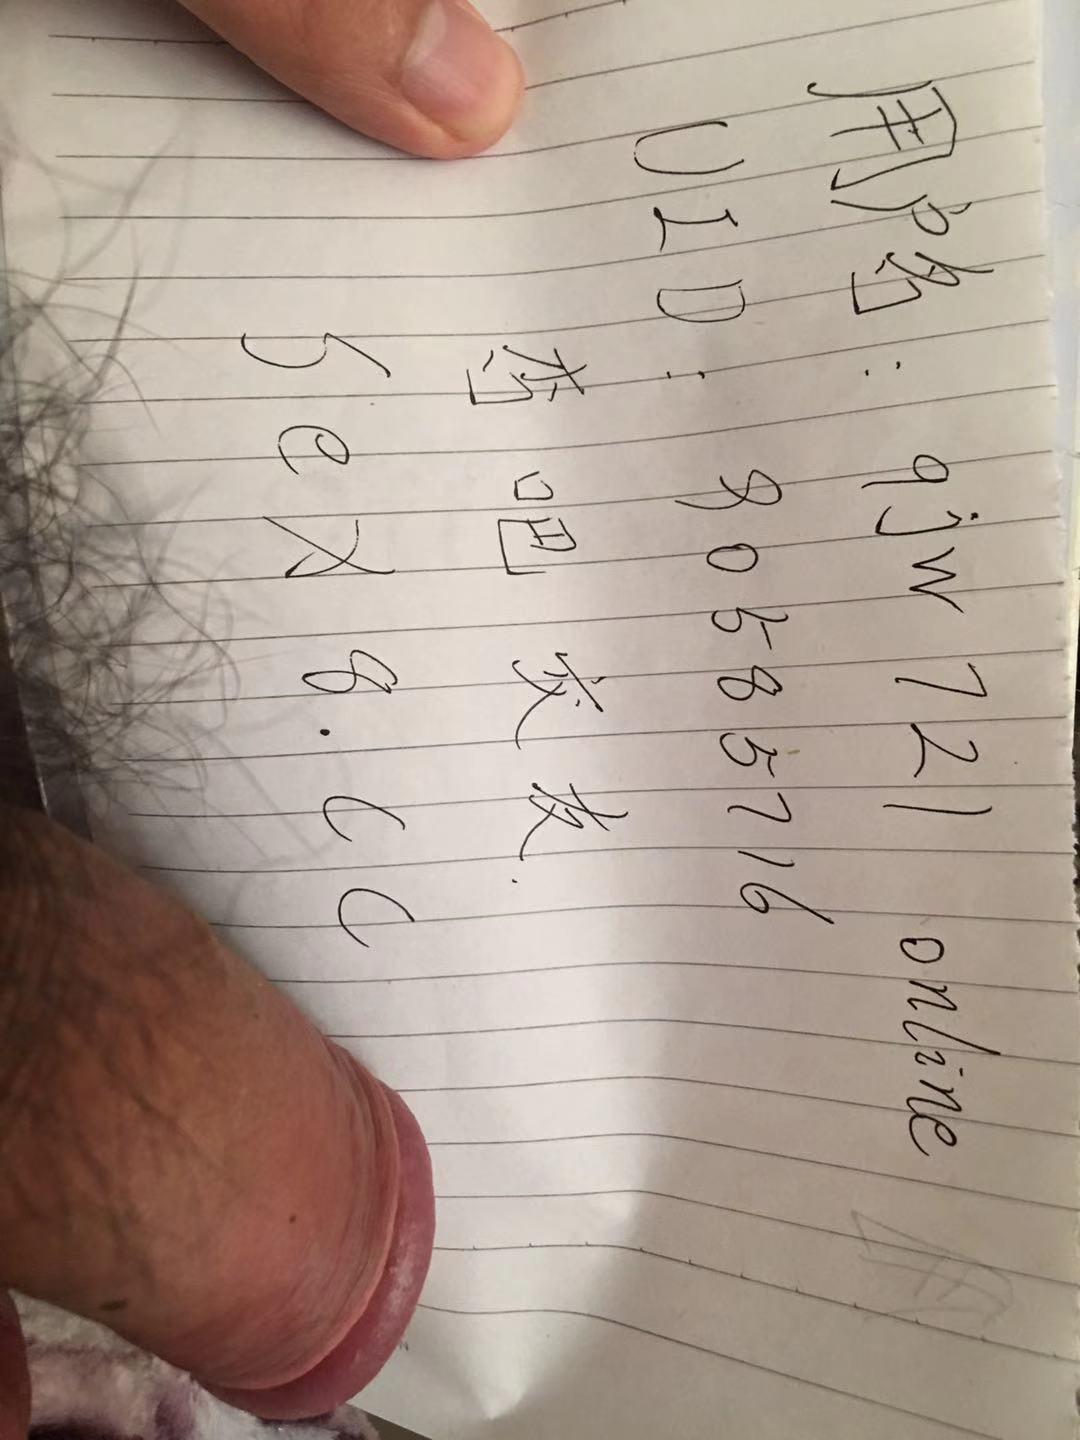 用户名：qjw721 online
UID：805885716
杏吧 首发.
sex8.cc